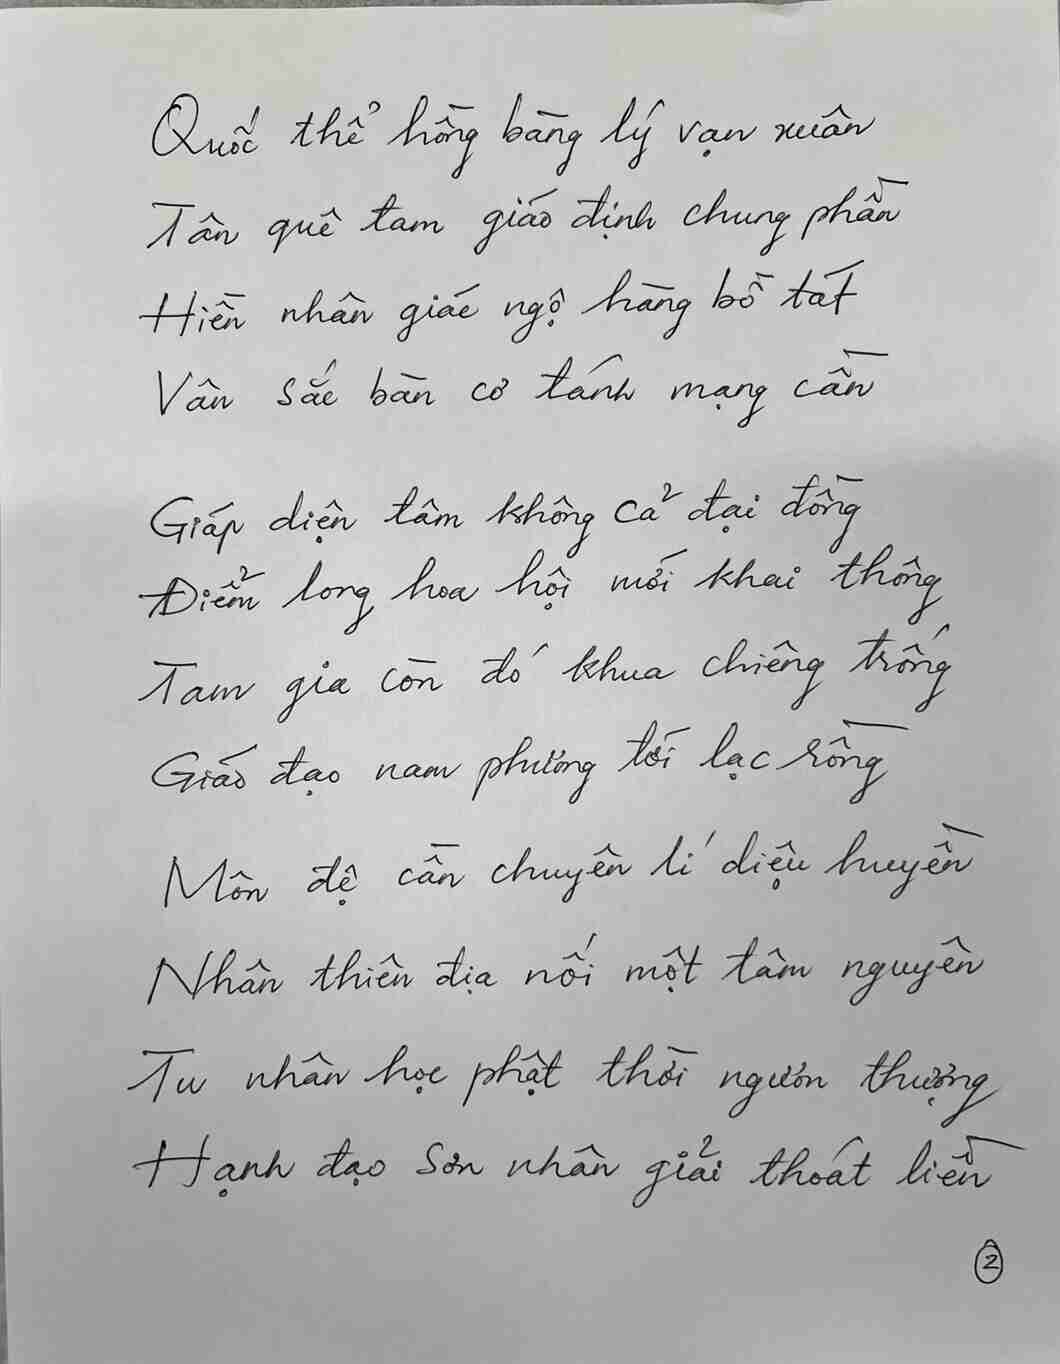 Quốc thể hồng bàng lý vạn xuân
Tân quê tam giáo định chung phần
Hiền nhân giác ngộ hàng bồ tát
Vân sắc bàn cơ tánh mạng cần
Giáp diện tâm không cả đại đồng
Điểm long hoa hội mới khai thông
Tam gia còn đó khua chiêng trống
Giáo đạo nam phương tới lạc rồng
Môn đệ cần chuyên lí diệu huyền
Nhân thiên địa nối một tâm nguyên
Tu nhân học phật thời ngươn thượng
Hạnh đạo sơn nhân giải thoát liền
2